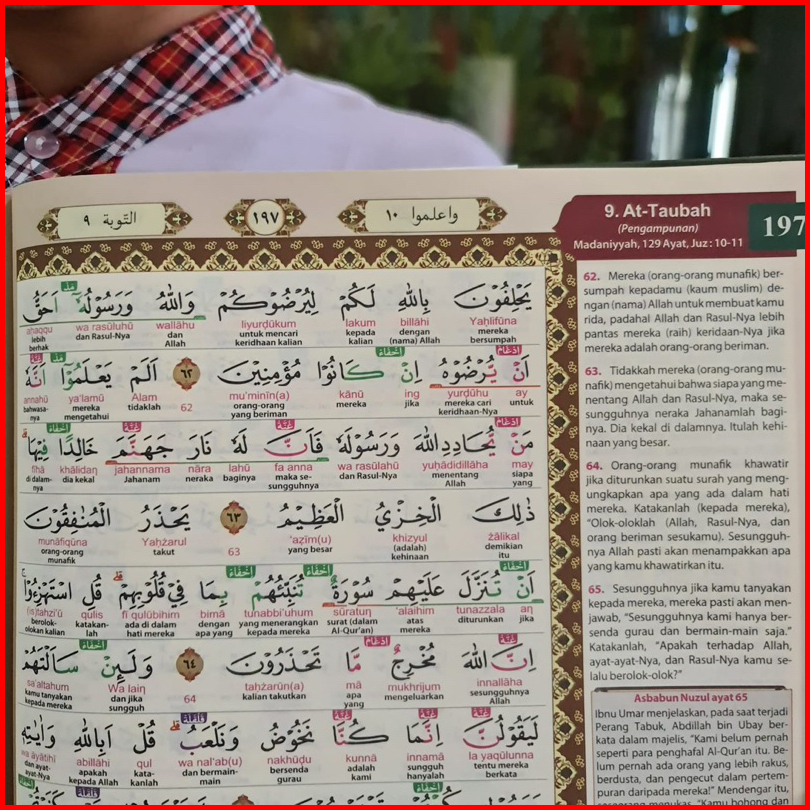 التوبة ٩
١٩٧
واعلموا ١٠
9. At-Taubah
(Pengampunan)
Madaniyyah, 129 Ayat, Juz : 10-11
197
يَحْلِفُوْنَ بِاللهِ لَكُمْ لِيُرْضُوْكُمْ وَاللهُ وَرَسُوْلُهٗٓ اَحَقُّ
Yaḥlifūna billāhi lakum liyurḍūkum wallāhu wa rasūluhū aḥaqqu
mereka bersumpah dengan (nama) Allah kepada kalian untuk mencari keridhaan kalian dan Allah dan Rasul-Nya lebih berhak
اَنْ يُّرْضُوْهُ اِنْ كَانُوْا مُؤْمِنِيْنَ ٦٢ اَلَمْ يَعْلَمُوْٓا اَنَّهٗ
ay yurḍūhu ing kānū mu'minīn(a) 62 Alam ya'lamū annahū
untuk mereka cari keridhaan-Nya jika mereka orang-orang yang beriman tidaklah mereka mengetahui bahwasa-nya
مَنْ يُّحَادِدِ اللهَ وَرَسُوْلَهٗ فَاَنَّ لَهٗ نَارَ جَهَنَّمَ خَالِدًا فِيْهَا
may yuḥādidillāha wa rasūlahū fa anna lahū nāra jahannama khālidan fīhā
siapa yang menentang Allah dan Rasul-Nya maka se-sungguhnya baginya neraka Jahanam dia kekal di dalam-nya
ذٰلِكَ الْخِزْيُ الْعَظِيْمُ ٦٣ يَحْذَرُ الْمُنٰفِقُوْنَ
żālikal khizyul 'aẓīm(u) 63 Yaḥżarul munāfiqūna
demikian itu (adalah) kehinaan yang besar takut orang-orang munafik
اَنْ تُنَزَّلَ عَلَيْهِمْ سُوْرَةٌ تُنَبِّئُهُمْ بِمَا فِيْ قُلُوْبِهِمْ قُلِ اسْتَهْزِءُوْا
an tunazzala 'alaihim sūratun tunabbi'uhum bimā fī qulūbihim qulis (is)tahzi'ū
jika diturunkan atas mereka surat (dalam Al-Qur'an) yang menerangkan kepada mereka dengan apa yang ada di dalam hati mereka katakan-lah berolok-olokan kalian
اِنَّ اللهَ مُخْرِجٌ مَّا تَحْذَرُوْنَ ٦٤ وَلَىِٕنْ سَاَلْتَهُمْ
innallāha mukhrijum mā taḥżarūn(a) 64 Wa lain sa'altahum
sesungguhnya Allah mengeluarkan apa yang kalian takutkan dan jika sungguh kamu tanyakan kepada mereka
لَيَقُوْلُنَّ اِنَّمَا كُنَّا نَخُوْضُ وَنَلْعَبُ قُلْ اَبِاللهِ وَاٰيٰتِهٖ
la yaqūlunna innamā kunnā nakhūḍu wa nal'ab(u) qul abillāhi wa āyātihī
tentu mereka berkata sungguh hanyalah adalah kami bersenda gurau dan bermain-main kata-kanlah apakah kepada Allah dan ayat-ayat-Nya
62. Mereka (orang-orang munafik) ber-
sumpah kepadamu (kaum muslim) de-
ngan (nama) Allah untuk membuat kamu
rida, padahal Allah dan Rasul-Nya lebih
pantas mereka (raih) keridaan-Nya jika
mereka adalah orang-orang beriman.
63. Tidakkah mereka (orang-orang mu-
nafik) mengetahui bahwa siapa yang me-
nentang Allah dan Rasul-Nya, maka se-
sungguhnya neraka Jahanamlah bagi-
nya. Dia kekal di dalamnya. Itulah kehi-
naan yang besar.
64. Orang-orang munafik khawatir
jika diturunkan suatu surah yang meng-
ungkapkan apa yang ada dalam hati
mereka. Katakanlah (kepada mereka),
“Olok-oloklah (Allah, Rasul-Nya, dan
orang beriman sesukamu). Sesungguh-
nya Allah pasti akan menampakkan apa
yang kamu khawatirkan itu.
65. Sesungguhnya jika kamu tanyakan
kepada mereka, mereka pasti akan men-
jawab, “Sesungguhnya kami hanya ber-
senda gurau dan bermain-main saja.”
Katakanlah, “Apakah terhadap Allah,
ayat-ayat-Nya, dan Rasul-Nya kamu se-
lalu berolok-olok?”
Asbabun Nuzul ayat 65
Ibnu Umar menjelaskan, pada saat terjadi
Perang Tabuk, Abdillah bin Ubay ber-
kata dalam majelis, “Kami belum pernah
seperti para penghafal Al-Qur'an itu. Be-
lum pernah ada orang yang lebih rakus,
berdusta, dan pengecut dalam pertem-
puran daripada mereka!” Mendengar itu,